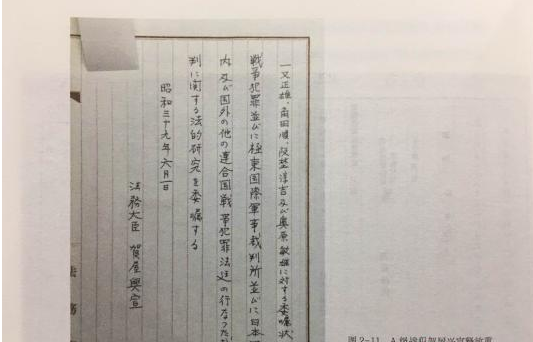 一又正雄、角田順、阪埜淳吉及び奥原敏雄に対する委嘱状
戦争犯罪並びに極東国際軍事裁判所並びに日本
内及び国外の他の連合国戦争犯罪法廷の行なった
判に関する法的研究を委嘱する
昭和三十九年六月一日
法務大臣 賀屋興宣
图2-11 A级战犯贺屋兴宣释放露